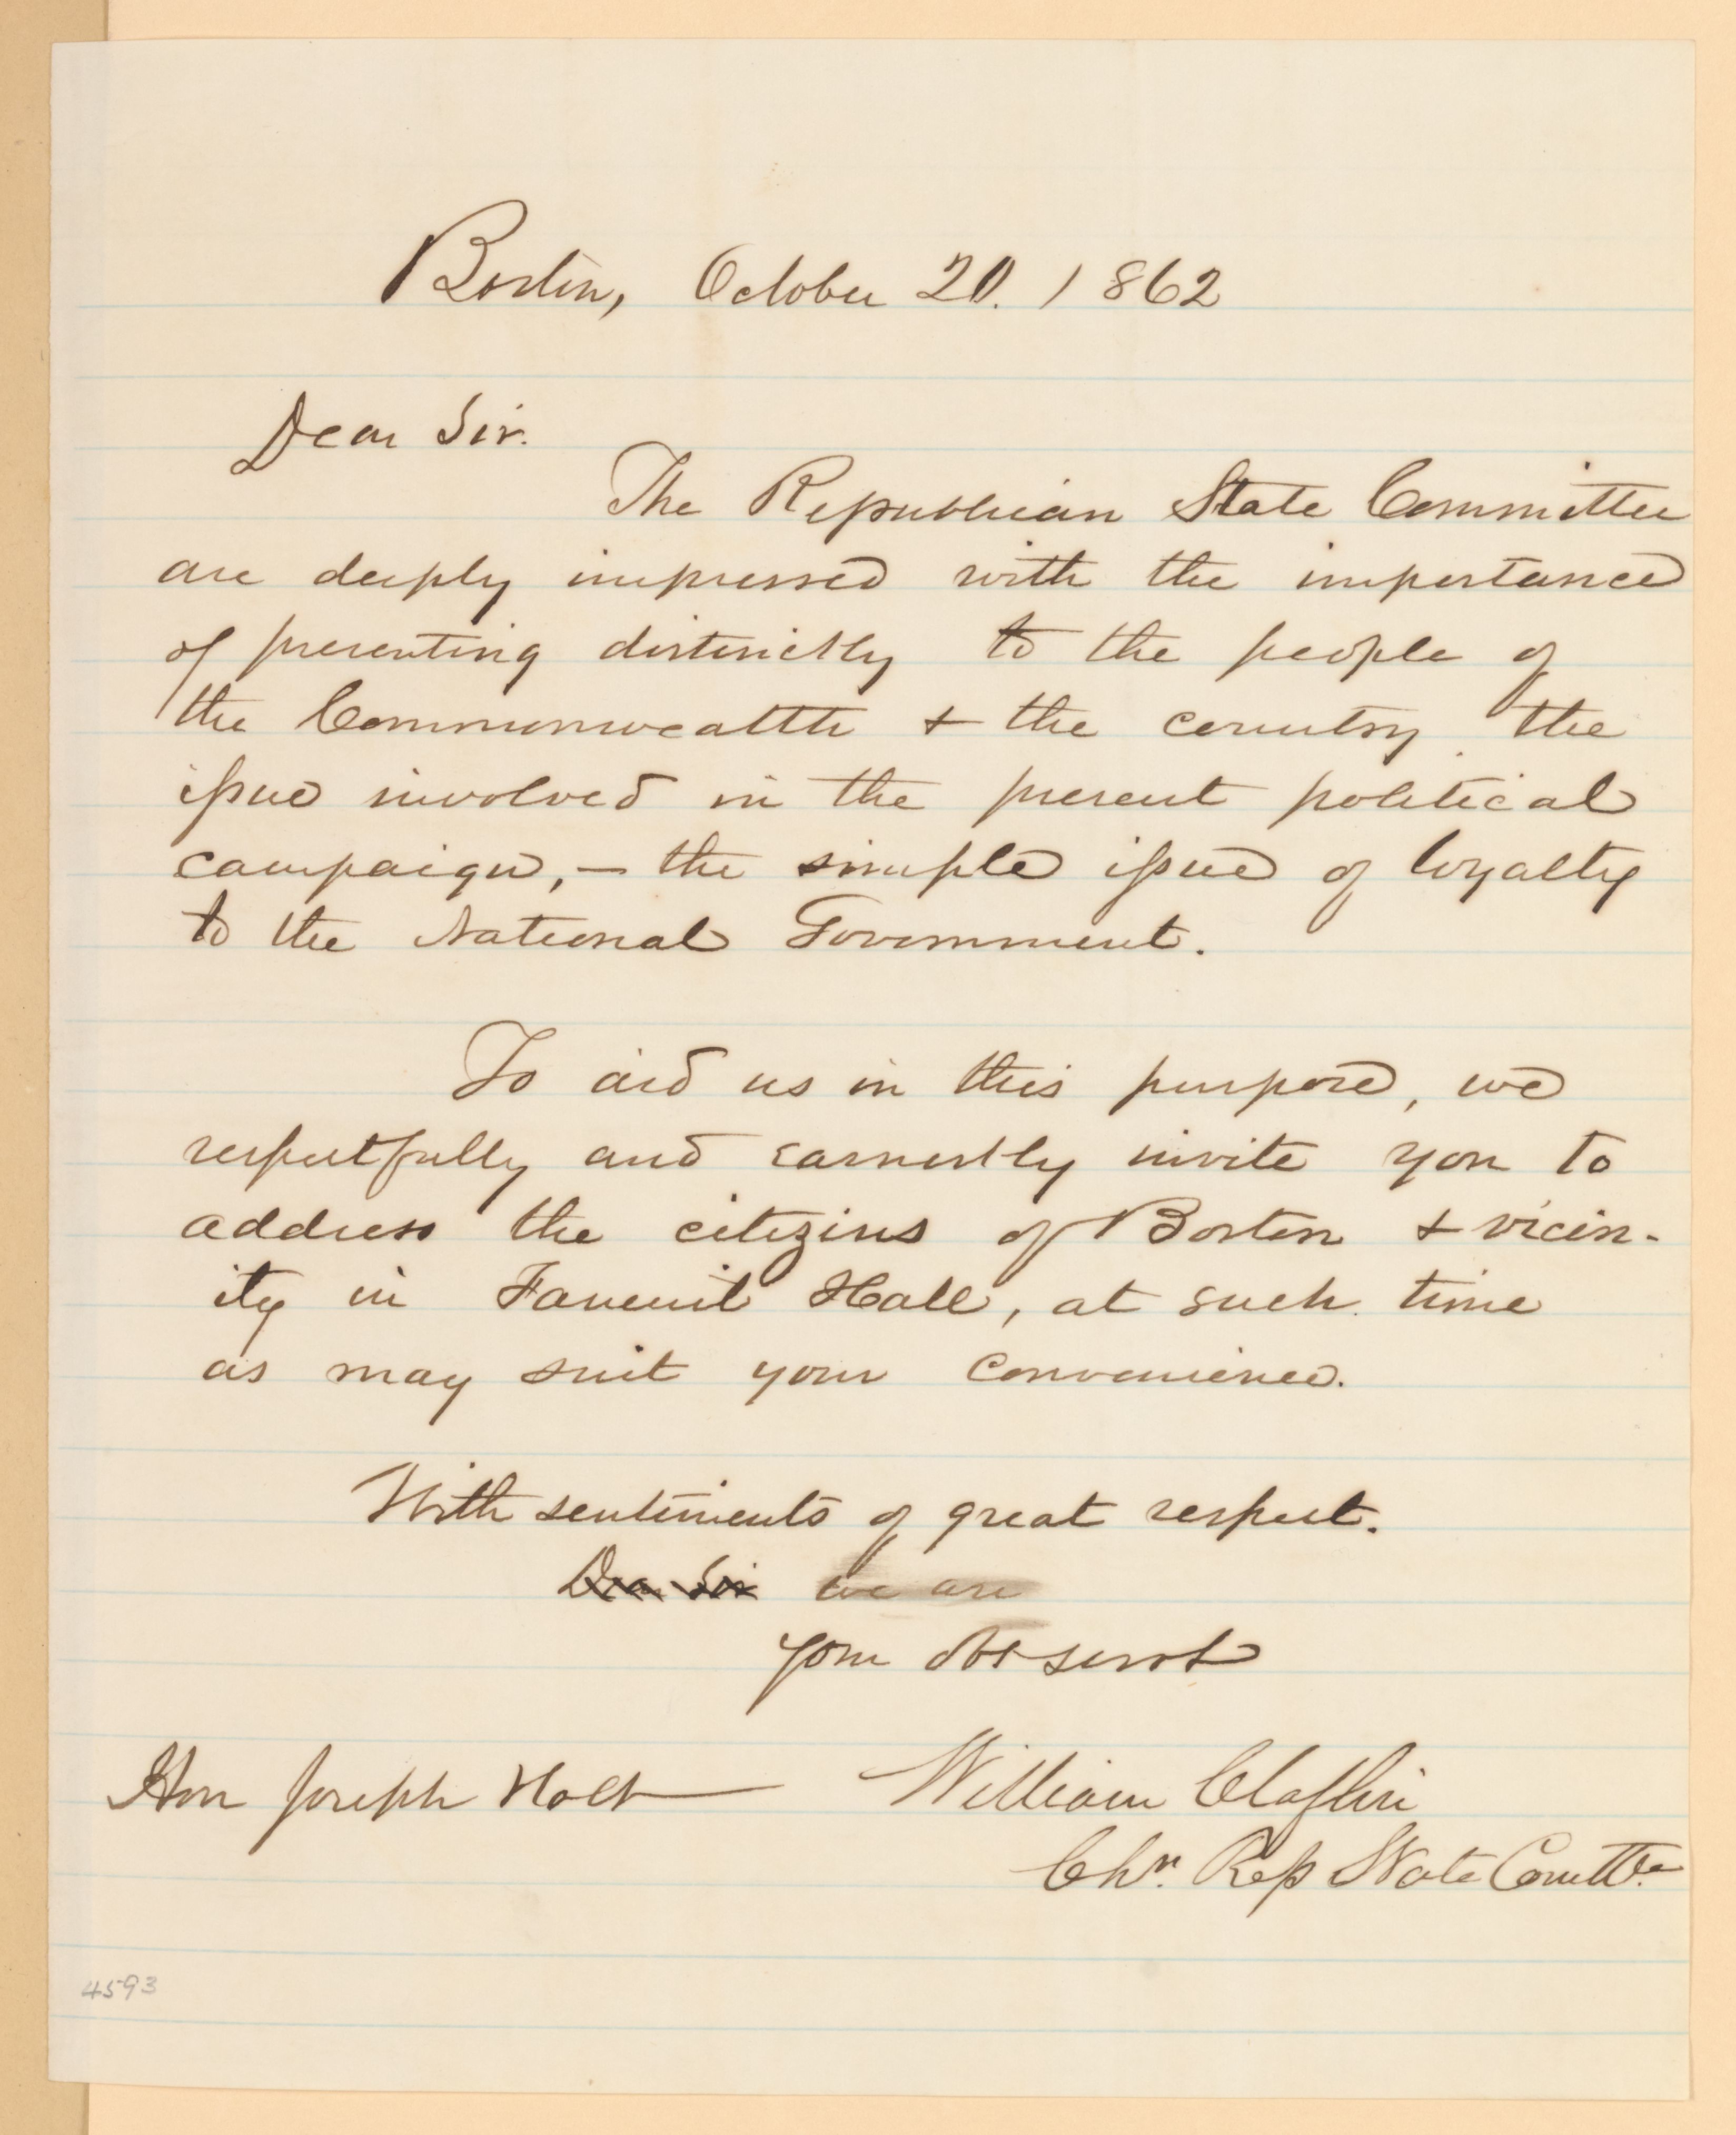 Boston, October 20. 1862
Dear Sir.
The Republican State Committee
are deeply impressed with the importance
of presenting distinctly to the people of
the Commonwealth & the country the
issue involved in the present political
campaign, — the simple issue of loyalty
to the National Government.
To aid us in this purpose, we
respectfully and earnestly invite you to
address the citizens of Boston & vicin-
ity in Faneuil Hall, at such time
as may suit your convenience.
With sentiments of great respect.
Dear Sir we are
Your obt servt
Hon Joseph Holt William Claflin
Chn. Rep State Comttee
4593